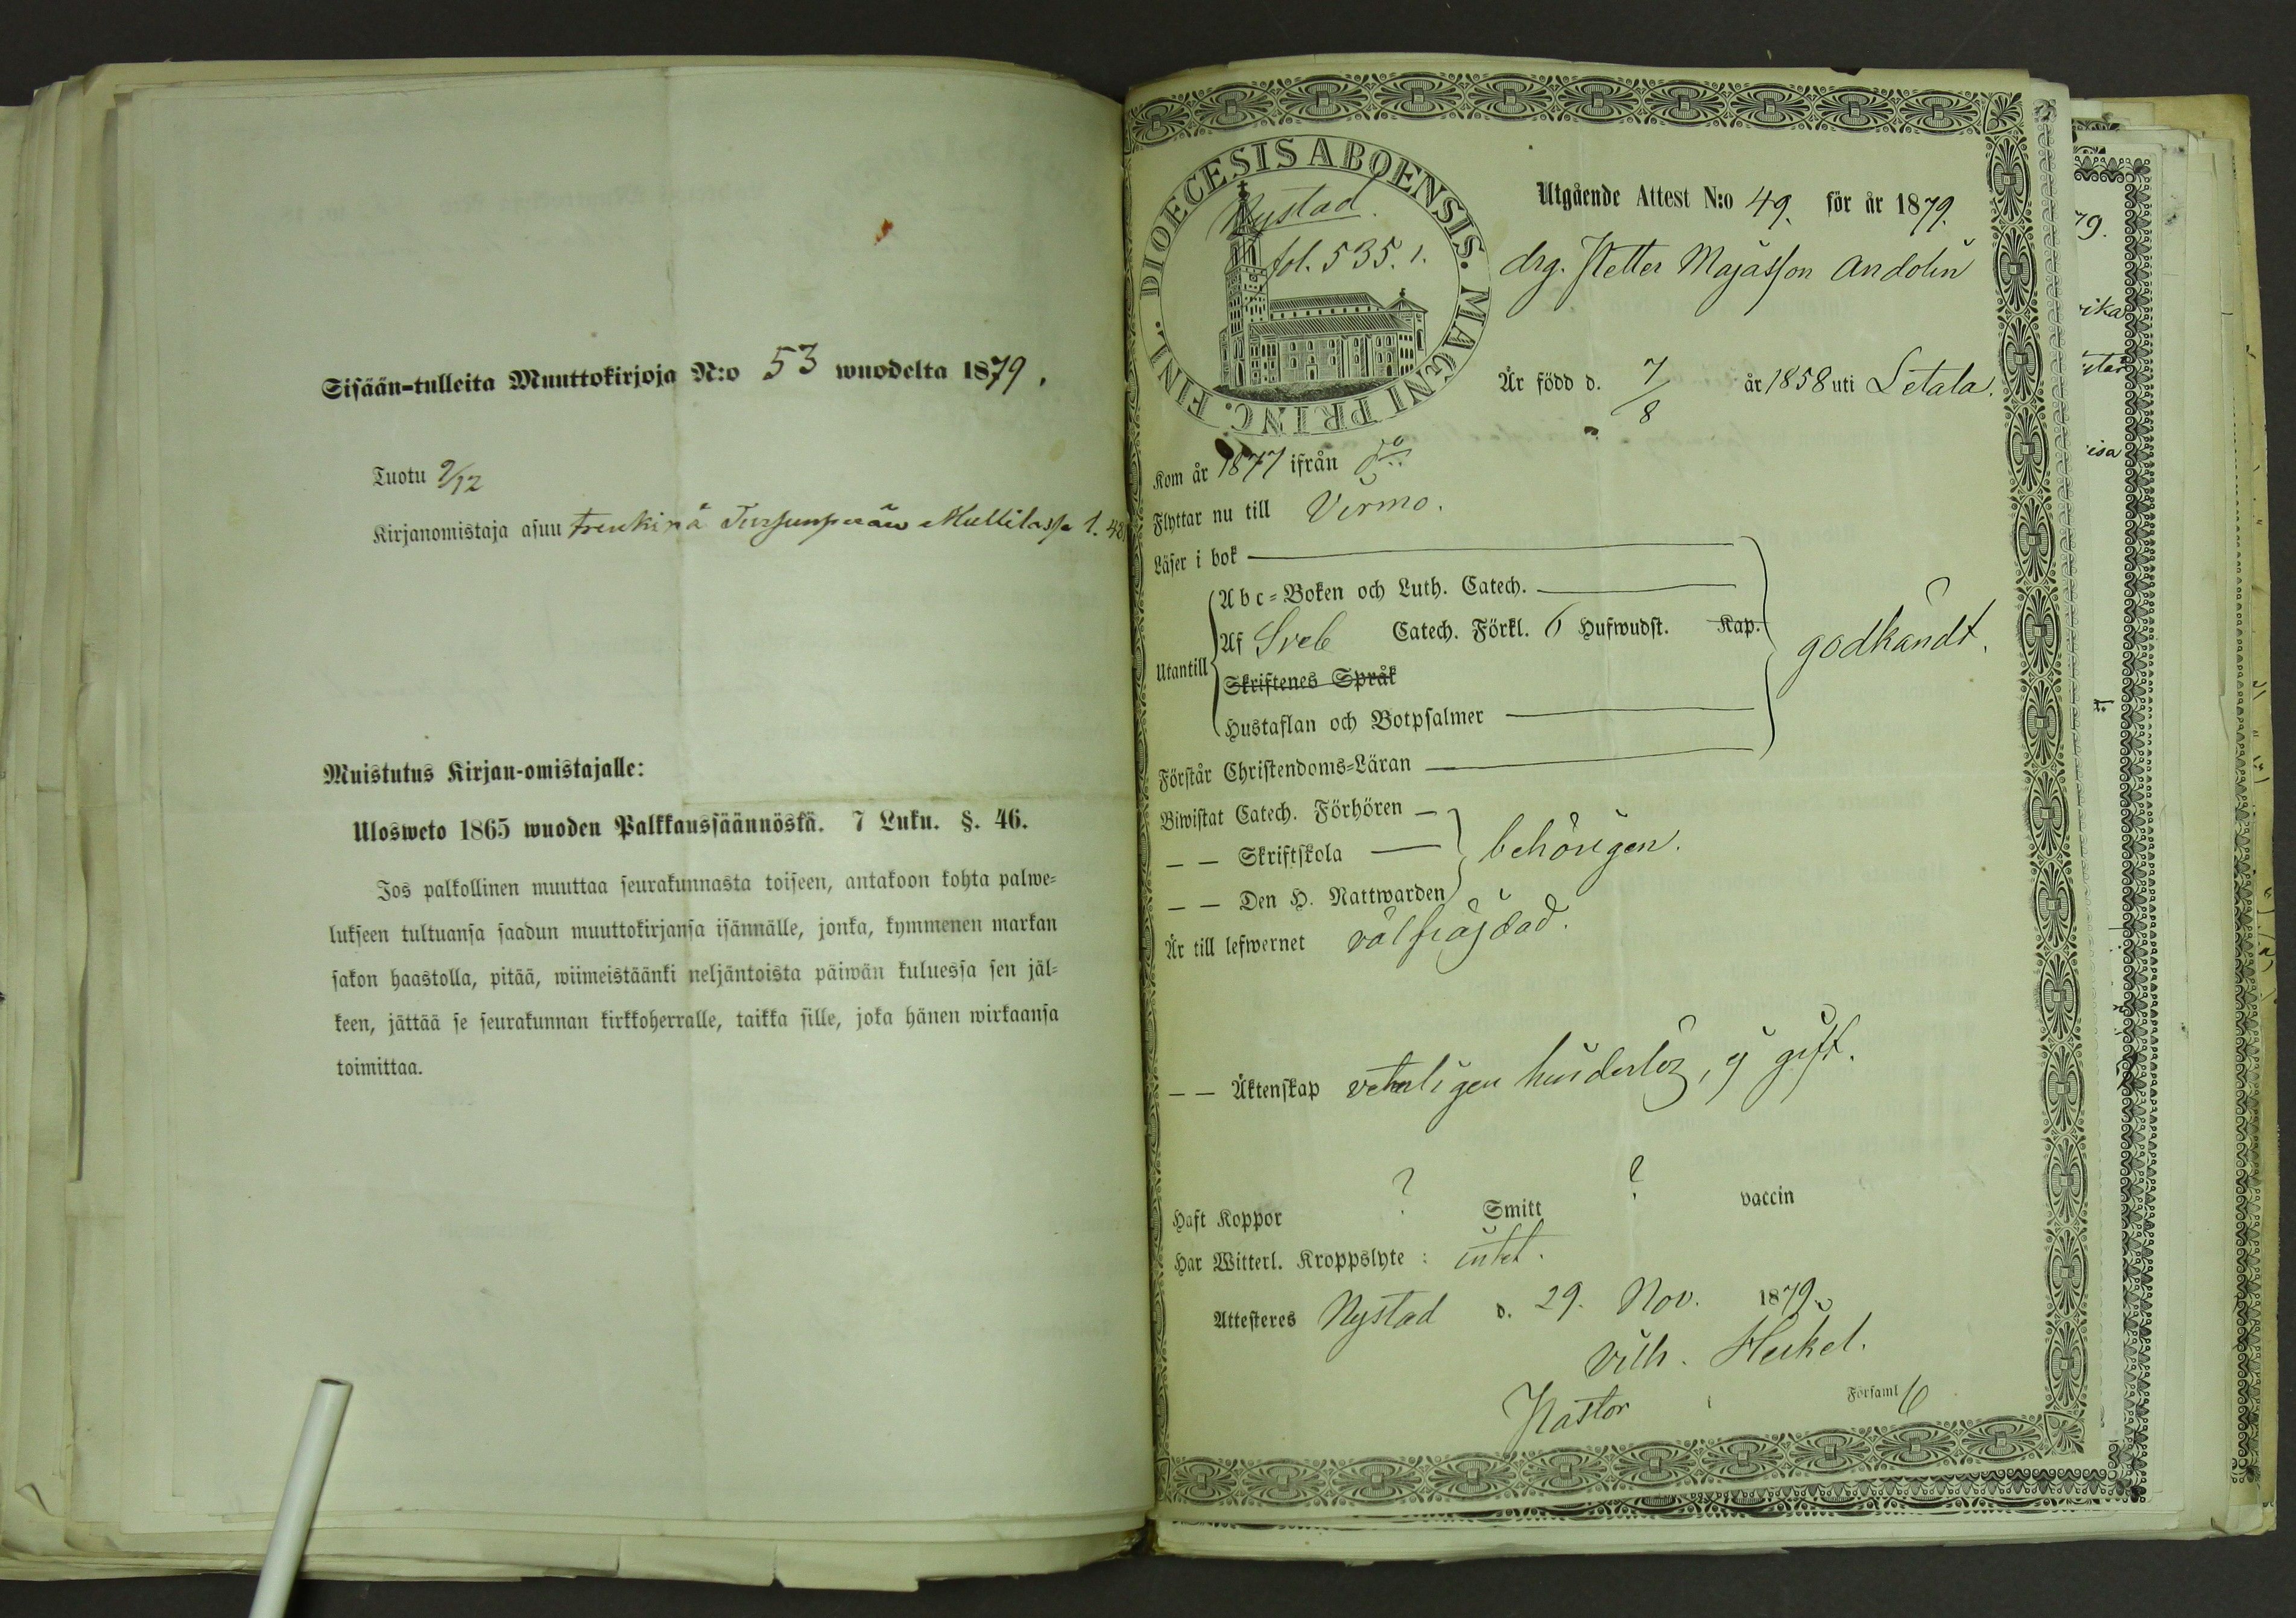 Sisään-tulleita Muuttokirjoja N:o 53 wuodelta 1879.
Tuotu 9/12
Kirjanomistaja asuu trenkinä l. 48
Muistutus Kirjan-omistajalle:
Ulosweto 1865 wuoden Palkkaussäännöskä. 7 Luku. §. 46.
Jos palkollinen muuttaa seurakunnasta toiseen, antakoon kohta palwe-
lukseen tultuansa saadun muuttokirjansa isännälle, jonka, kymmenen markan
sakon haastolla, pitää, wiimeistäänki neljäntoista päiwän kuluessa sen jäl-
keen, jättää se seurakunnan kirkkoherralle, taikka sille, joka hänen wirkaansa
toimittaa.
DIOECESIS ABOENSIS. MAGNI PRINC. FINL.
Nystad.
fol. 535. 1.
Utgående Attest N:o 49. för år 1879.
drg. Majasson Andolin
Är född d. 7/8 år 1858 uti Letala.
Kom år 1877 ifrån do
Flyttar nu till Virmo.
Läser i bok
Utantill
Abc-Boken och Luth. Catech.
Af Sveb Catech. Förkl. 6 Hufwudst. Kap.
Skriftenes Språk
Hustaflan och Botpsalmer
godkändt.
Förstår Christendoms-Läran
Biwistat Catech. Förhören
— — Skriftskola
— — Den H. Nattwarden
behörigen.
Är till lefwernet välfräjdad.
— — Äktenskap veterligen hinderlös, ej gift.
Haft Koppor ? Smitt ? vaccin
Har Witterl. Kroppslyte: intet.
Attesteres Nystad d. 29. Nov. 1879.
Vilh. Heikel.
Pastor Församl
79.
rika
isa